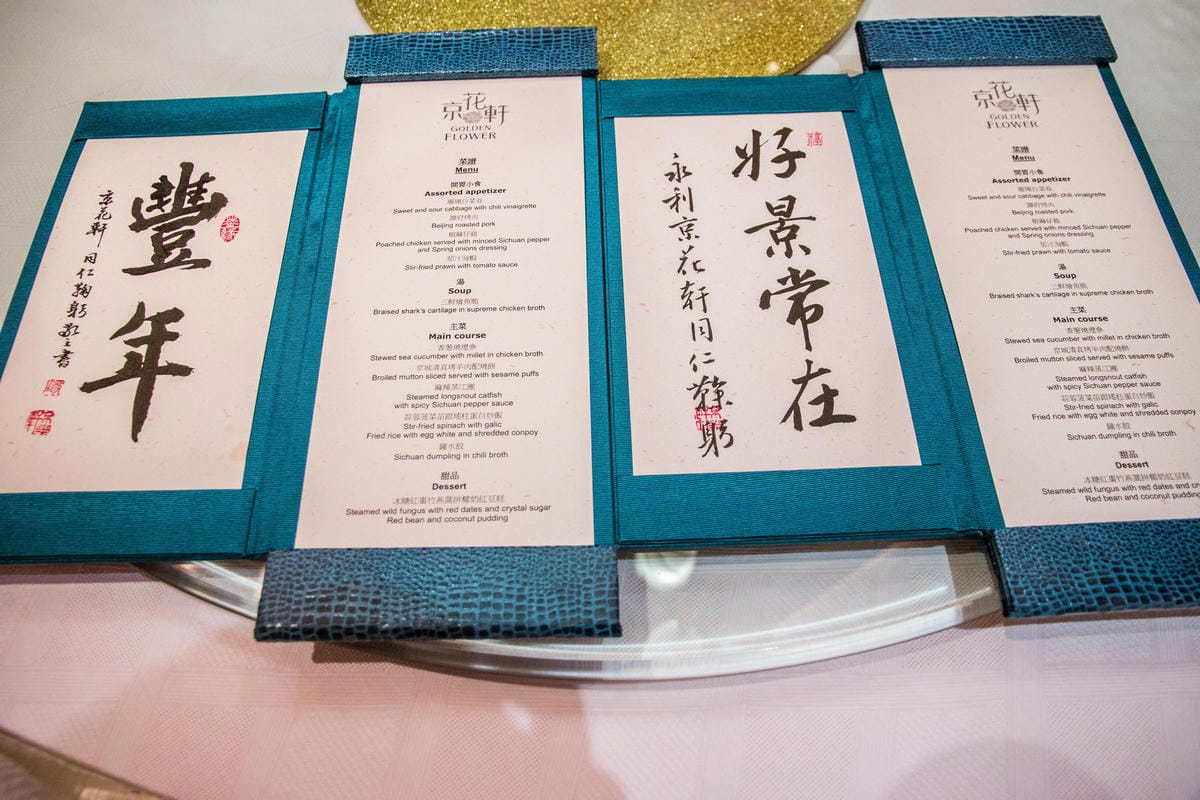 豐年
京花軒同仁鞠躬敬之書
京花軒
GOLDEN
FLOWER
菜譜
Menu
開胃小食
Assorted appetizer
珊瑚白菜卷
Sweet and sour cabbage with chili vinaigrette
譚府烤肉
Beijing roasted pork
椒麻仔雞
Poached chicken served with minced Sichuan pepper
and Spring onions dressing
茄汁海蝦
Stir-fried prawn with tomato sauce
湯
Soup
三鮮燴魚脆
Braised shark's cartilage in supreme chicken broth
主菜
Main course
香蔥燒遼參
Stewed sea cucumber with millet in chicken broth
京城清真烤羊肉配燒餅
Broiled mutton sliced served with sesame puffs
麻辣蒸江團
Steamed longsnout catfish
with spicy Sichuan pepper sauce
蒜蓉菠菜苗跟瑤柱蛋白炒飯
Stir-fried spinach with galic
Fried rice with egg white and shredded conpoy
鐘水餃
Sichuan dumpling in chili broth
甜品
Dessert
冰糖紅棗竹燕窩拼椰奶紅豆糕
Steamed wild fungus with red dates and crystal sugar
Red bean and coconut pudding
好景常在
永利京花軒同仁鞠躬
京花軒
GOLDEN
FLOWER
菜譜
Menu
開胃小食
Assorted appetizer
珊瑚白菜卷
Sweet and sour cabbage with chili vinaigrette
譚府烤肉
Beijing roasted pork
椒麻仔雞
Poached chicken served with minced Sichuan pepper
and Spring onions dressing
茄汁海蝦
Stir-fried prawn with tomato sauce
湯
Soup
三鮮燴魚脆
Braised shark's cartilage in supreme chicken broth
主菜
Main course
香蔥燒遼參
Stewed sea cucumber with millet in chicken broth
京城清真烤羊肉配燒餅
Broiled mutton sliced served with sesame puffs
麻辣蒸江團
Steamed longsnout catfish
with spicy Sichuan pepper sauce
蒜蓉菠菜苗跟瑤柱蛋白炒飯
Stir-fried spinach with galic
Fried rice with egg white and shredded conpoy
鐘水餃
Sichuan dumpling in chili broth
甜品
Dessert
冰糖紅棗竹燕窩拼椰奶紅豆糕
Steamed wild fungus with red dates and cry
Red bean and coconut pudding